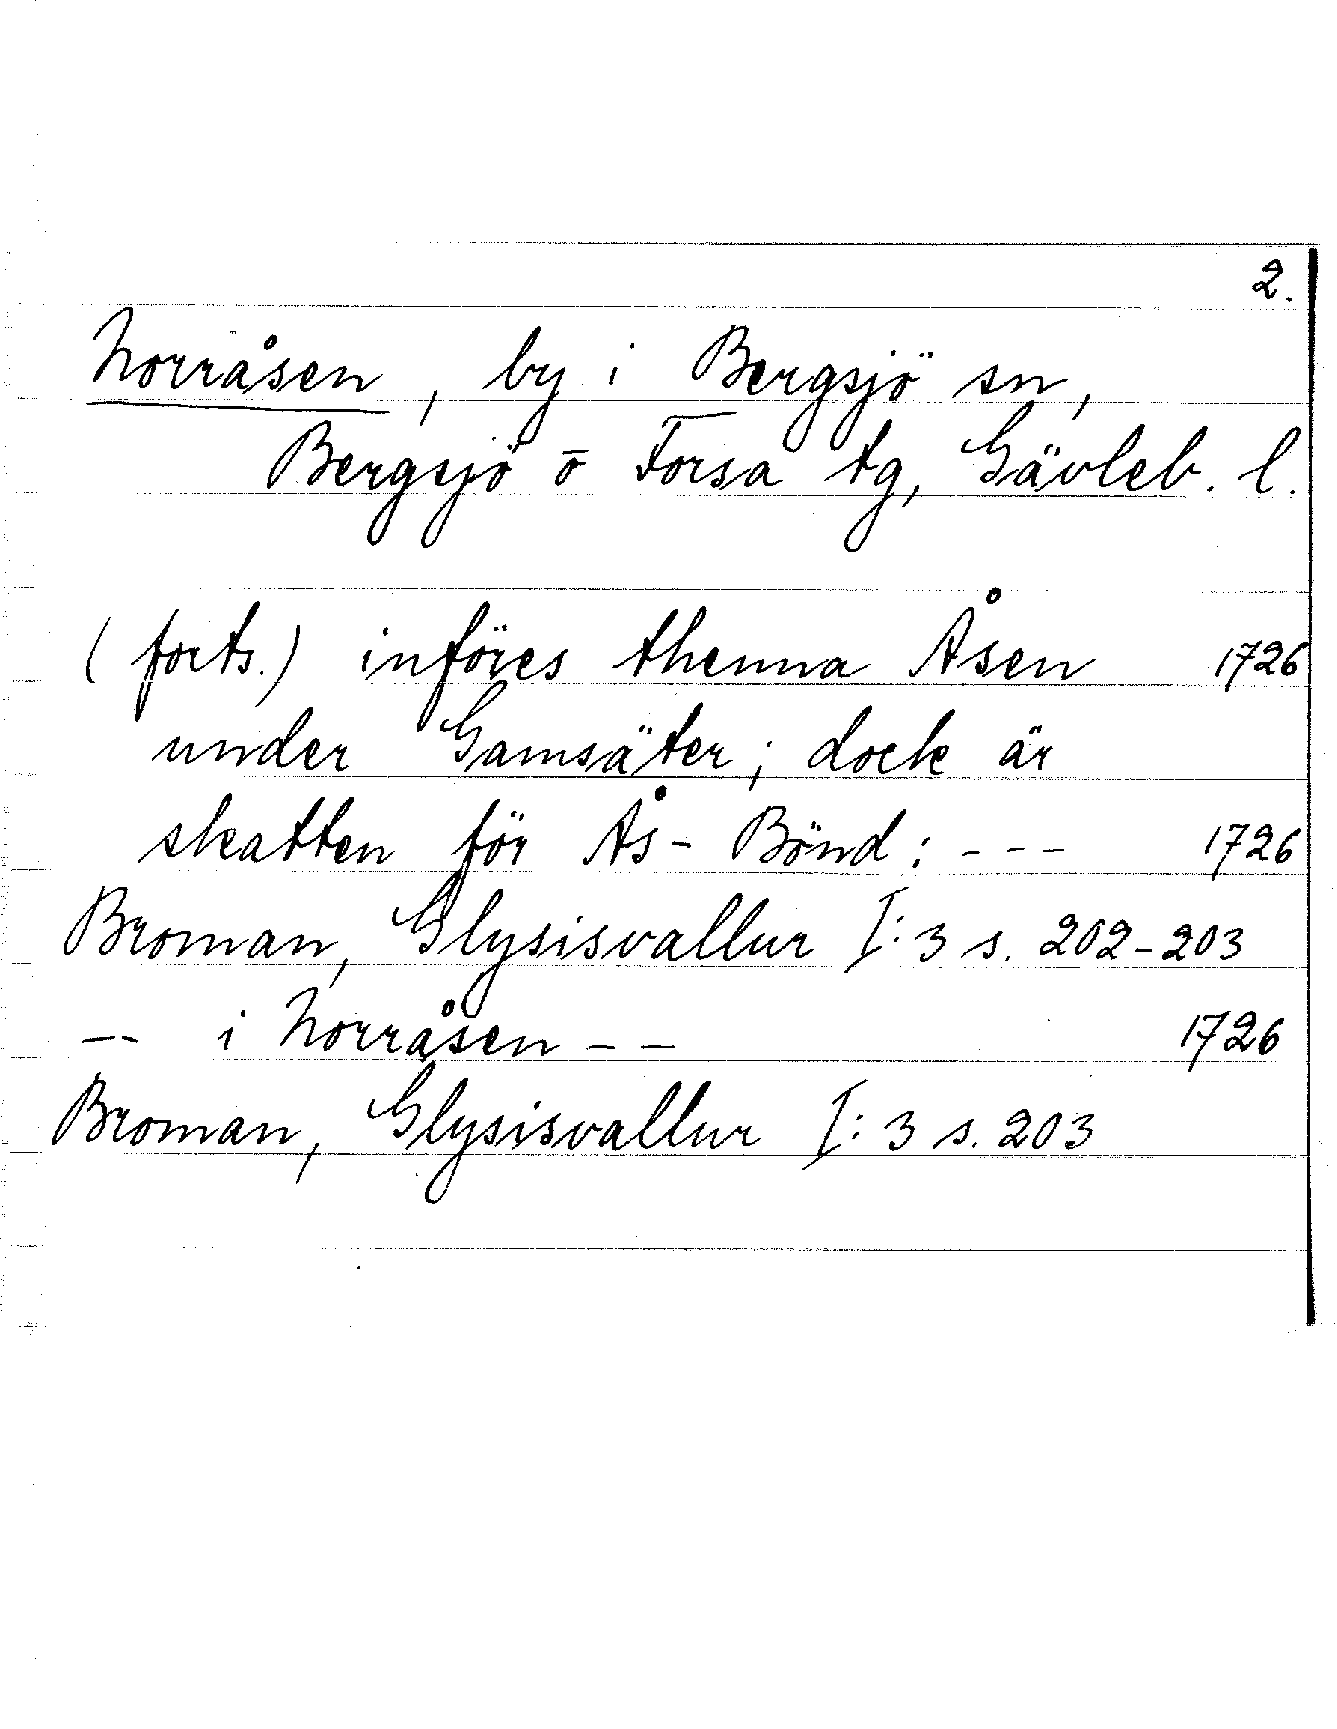 2.
Norråsen, by i Bergsjö sn,
Bergsjö o Forsa tg, Gävleb. l.
(forts.) införes thenna Åsen 1726
under Gamsäter; dock är
skatten för Ås-Bönd: --- 1726
Broman, Glysisvallur I:3 s. 202-203
-- i Norråsen -- 1726
Broman, Glysisvallur I:3 s. 203